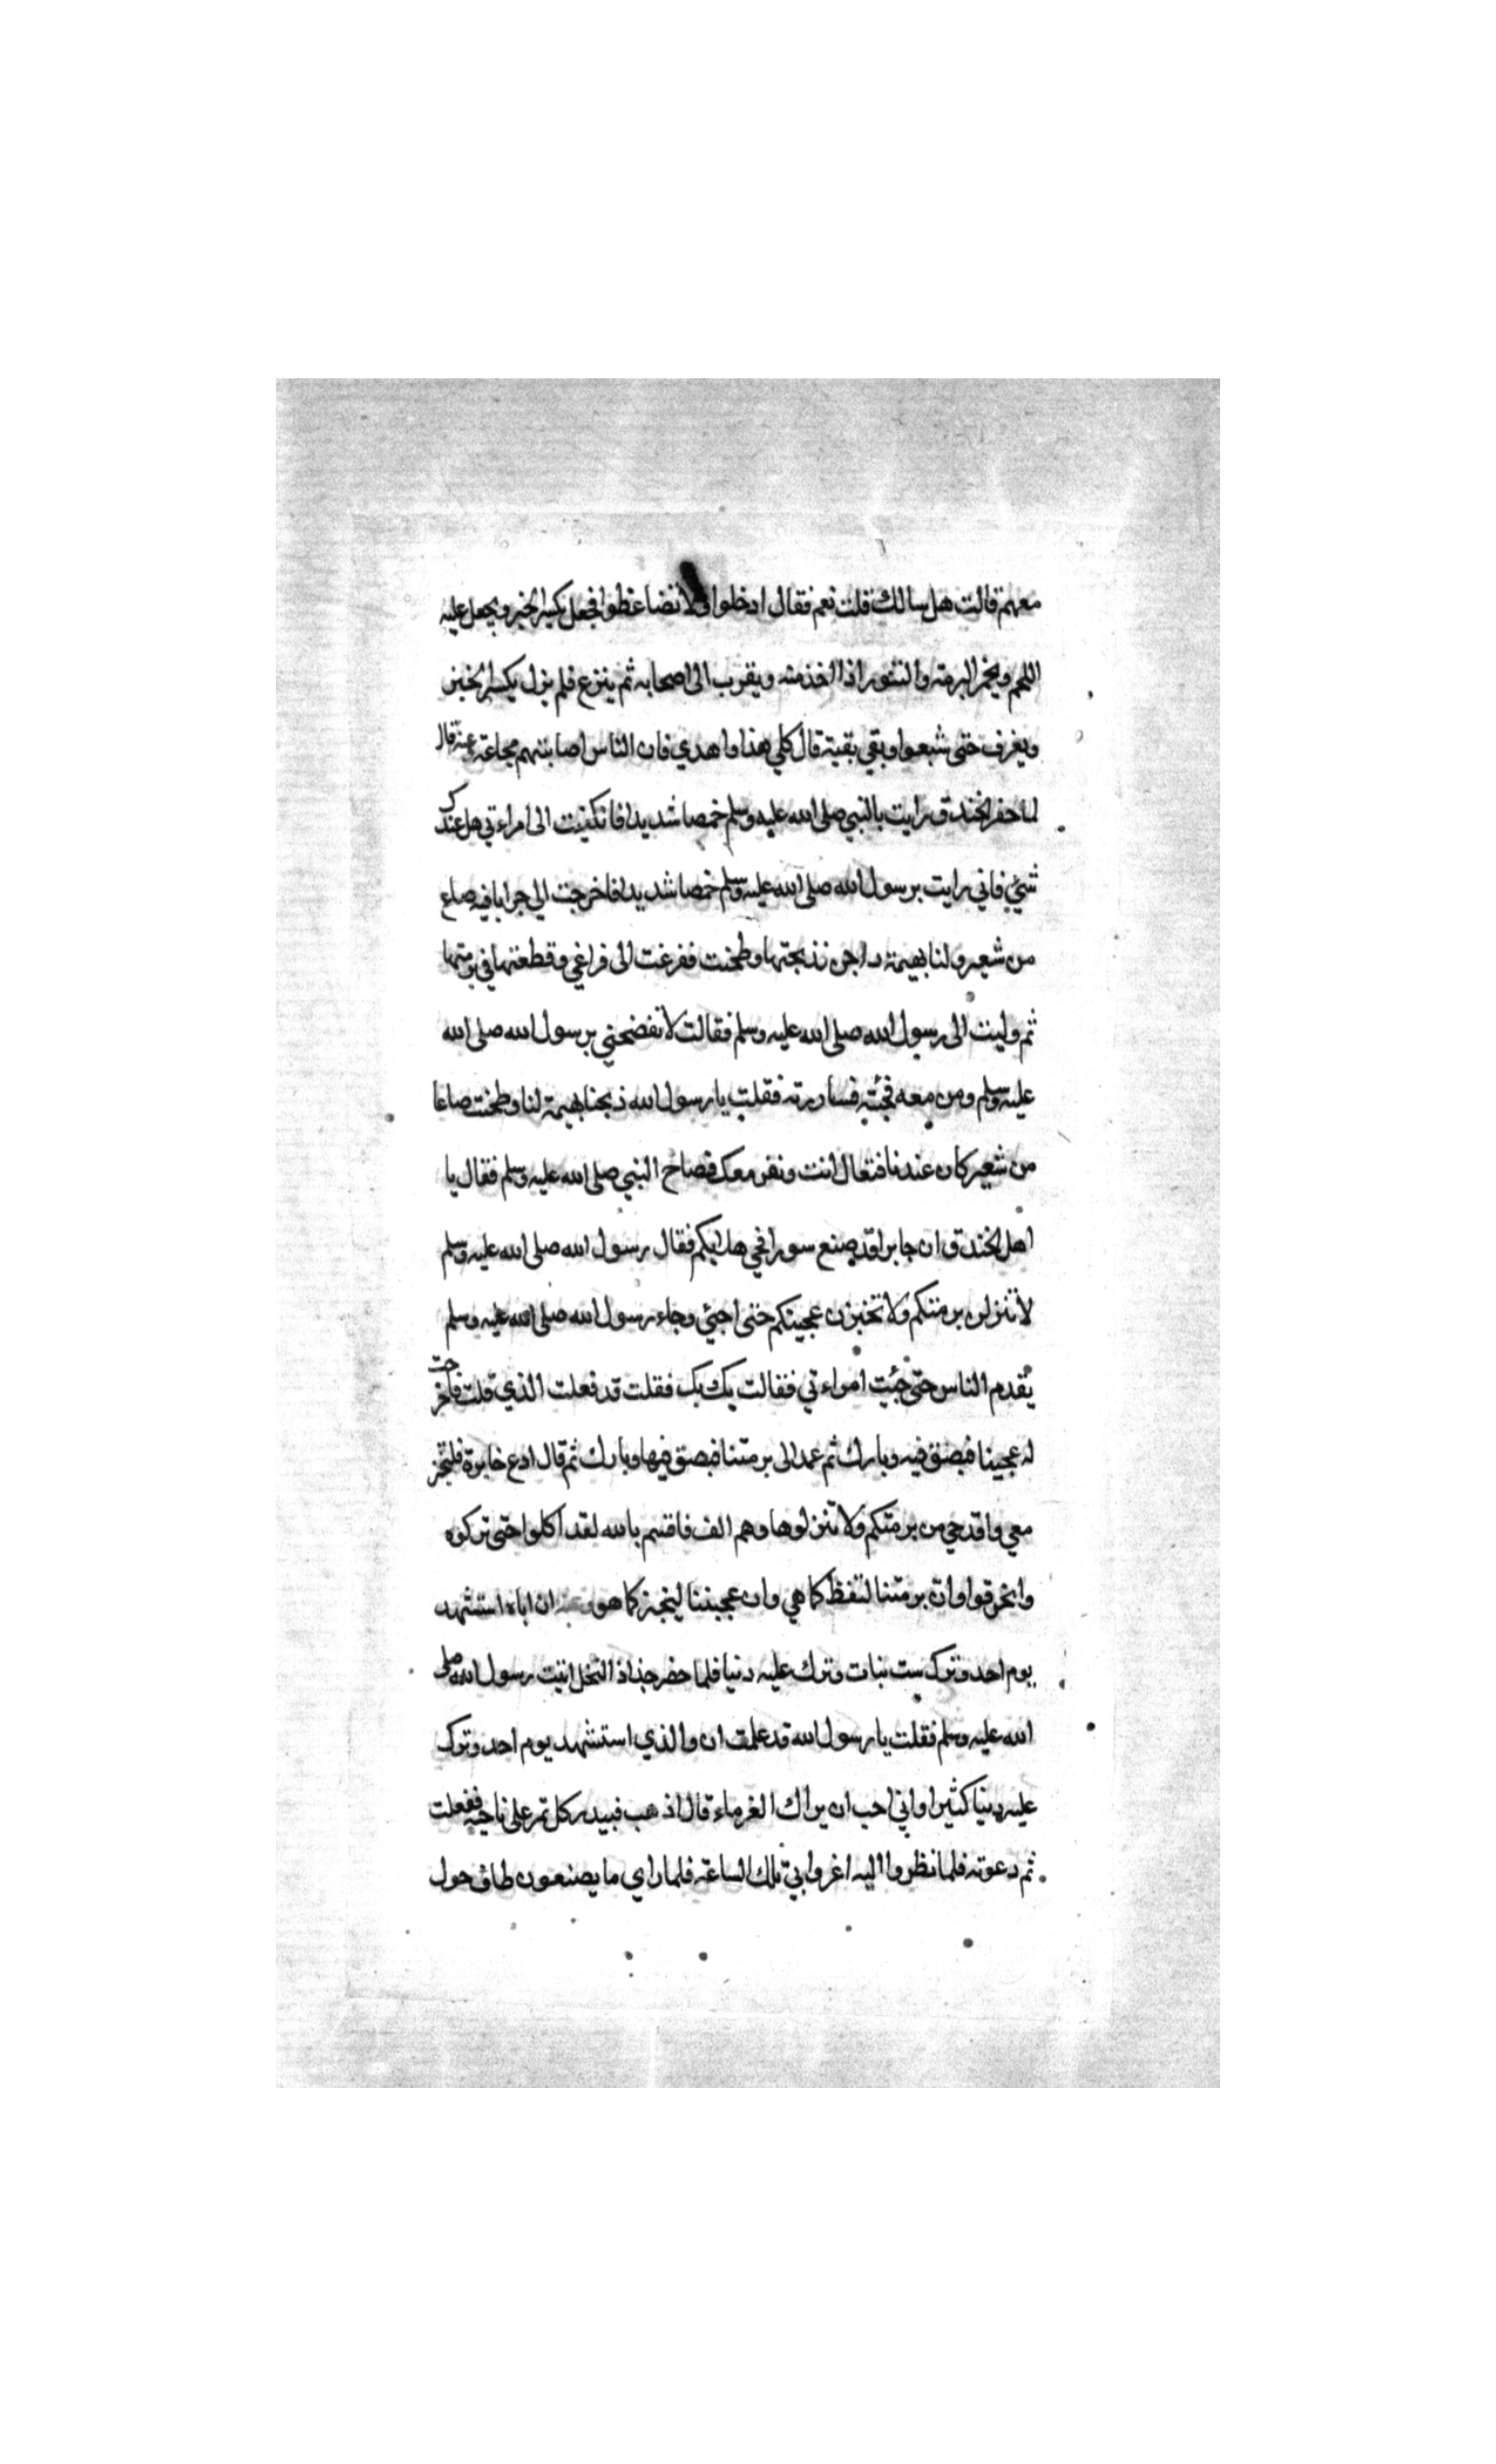 معهم قالت هل سالك قلت نعم فقال ادخلوا ولا تضاغطوا فجعل يكسر الخبز ويجعل عليه
اللحم ويخمر البرمة والتنور اذا اخذ منه ويقرب الى اصحابه ثم ينزع فلم يزل يكسر الخبز
ويغرف حتى شبعوا وبقي بقية قال كلي هذا واهدي فان الناس اصابتهم مجاعة عنه قال
لما حفر الخندق رايت بالنبي صلى الله عليه وسلم خمصا شديدا فانكفيت الى امراءتي هل عندك
شئ فاني رايت برسول الله صلى الله عليه وسلم خمصا شديدا فاخرجت الي جرابا فيه صاع
من شعير ولنا بهيمة داجن فذبحتها وطحنت ففرغت الى فراغي وقطعتها في برمتها
ثم وليت الى رسول الله صلى الله عليه وسلم فقالت لا تفضحني برسول الله صلى الله
عليه وسلم ومن معه فجئته فساررته فقلت يا رسول الله ذبحنا بهيمة لنا وطحنت صاعا
من شعير كان عندنا فتعال انت ونفر معك فصاح النبي صلى الله عليه وسلم فقال يا
اهل الخندق ان جابرا قد صنع سورا فحي هلا بكم فقال رسول الله صلى الله عليه وسلم
لا تنزلن برمتكم ولا تخبزن عجينكم حتى اجئ وجاء رسول الله صلى الله عليه وسلم
يقدم الناس حتى جئت امراءتي فقالت بك بك فقلت قد فعلت الذي قلت فاخرجت
له عجينا فبصق فيه وبارك ثم عمد الى برمتنا فبصق فيها وبارك ثم قال ادع خابزة فلتخبز
معي واقدحي من برمتكم ولا تنزلوها وهم الف فاقسم بالله لقد اكلوا حتى تركوه
وانحرفوا وان برمتنا لتغط كما هي وان عجيننا ليخبز كما هو وعنه ان اباه استشهد
يوم احد وترك ست بنات وترك عليه دينا فلما حضر جذاذ النخل اتيت رسول الله صلى
الله عليه وسلم فقلت يا رسول الله قد علمت ان والذي استشهد يوم احد وترك
عليه دينا كثيرا واني احب ان يراك الغرماء قال اذهب فبيدر كل تمر على ناحية ففعلت
ثم دعوته فلما نظروا اليه اغروا بي تلك الساعة فلما راي ما يصنعون طاف حول